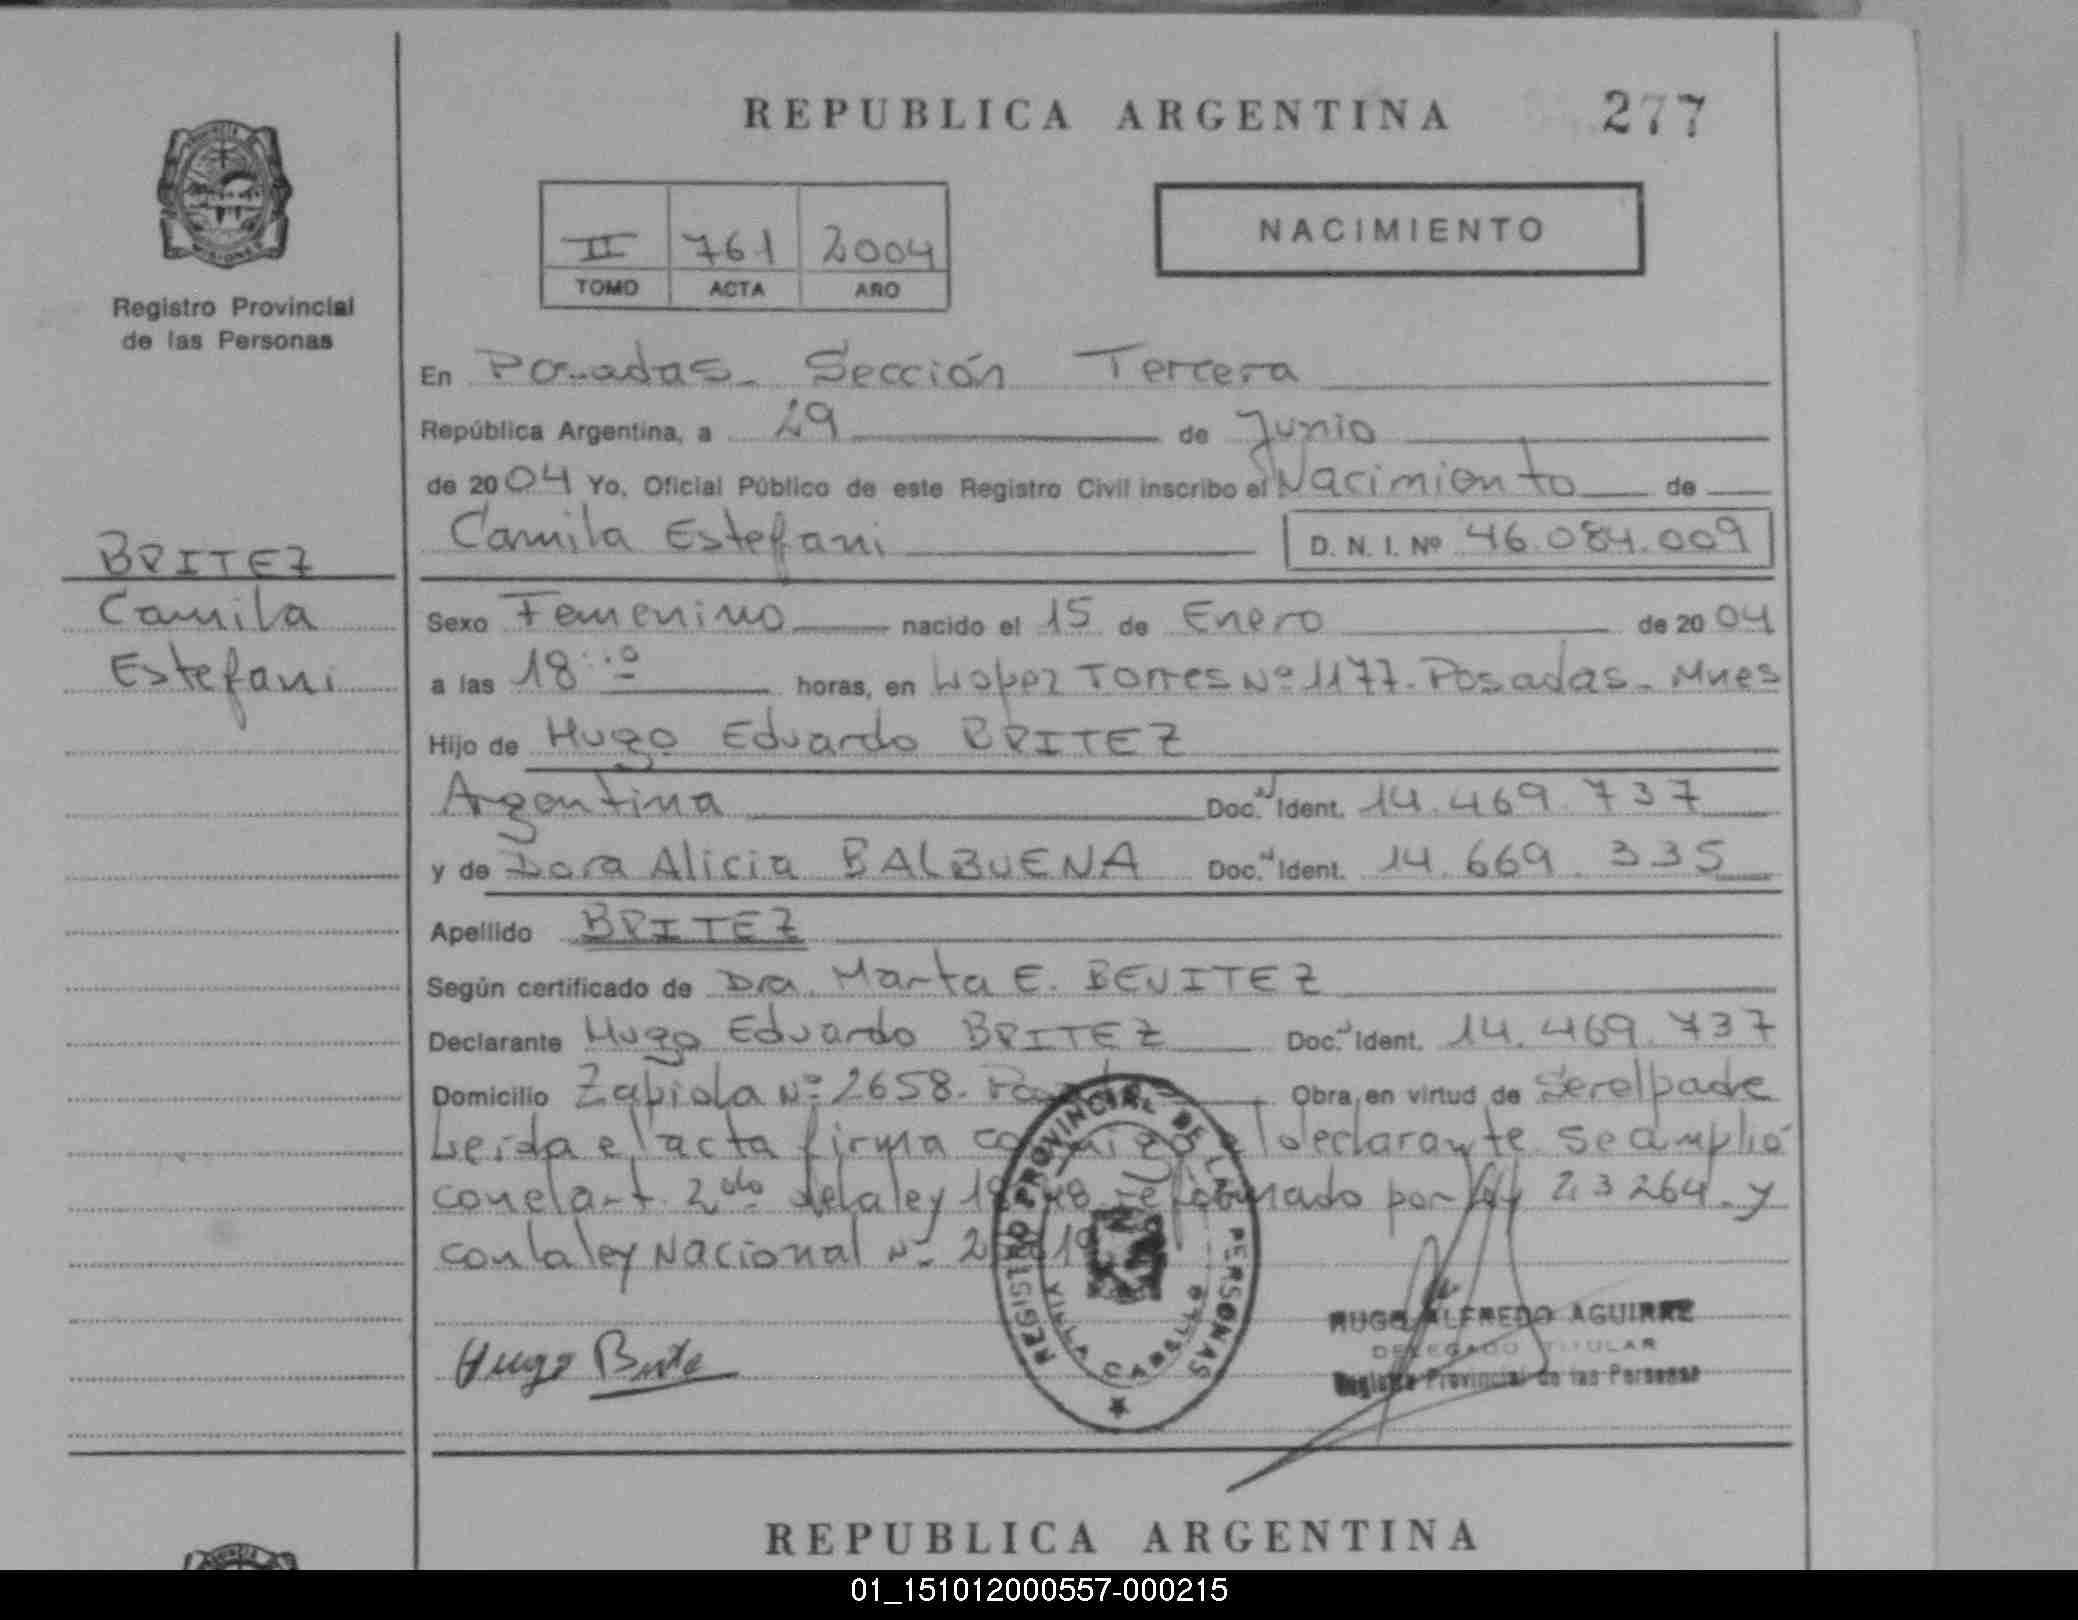 REPUBLICA ARGENTINA 277
II 761 2004
TOMO ACTA AÑO
NACIMIENTO
Registro Provincial
de las Personas
En Posadas - Sección Tercera
República Argentina, a 29 de Junio
de 2004 Yo, Oficial Público de este Registro Civil inscribo el Nacimiento de
Camila Estefani D. N. I. Nº 46.084.009
BRITEZ
Camila
Estefani
Sexo Femenino nacido el 15 de Enero de 2004
a las 18 horas, en López Torres Nº 1177. Posadas - Mnes
Hijo de Hugo Eduardo BRITEZ
Argentina Doc. Ident. 14.469.737
y de Dora Alicia BALBUENA Doc. Ident. 14.669.335
Apellido BRITEZ
Según certificado de Dra. Marta E. BENITEZ
Declarante Hugo Eduardo BRITEZ Doc. Ident. 14.469.737
Domicilio Zapiola Nº 2658. Obra en virtud de Ser el padre
Leida el acta firma conmigo el declarante. Se amplió
con el art. 2do de la ley reformado por ley 23264. y
con la ley Nacional Nº
REGISTRO PROVINCIAL DE LAS PERSONAS
VILLA CABELLO
Hugo
HUGO ALFREDO AGUIRRE
DELEGADO TITULAR
Registro Provincial de las Personas
REPUBLICA ARGENTINA
01_151012000557-000215